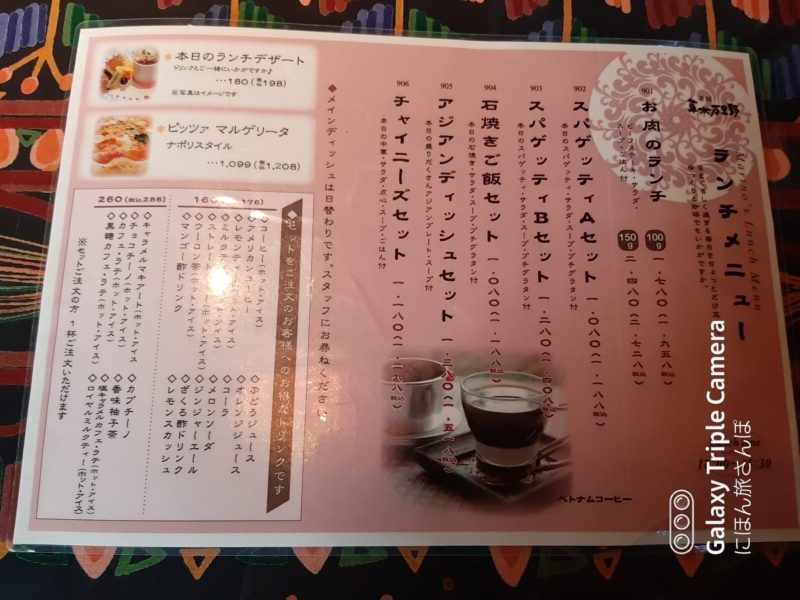 ランチメニュー
Lunch Menu
901
お肉のランチ
ビーフステーキ・サラダ・
スープ・ごはん付
100g 一・七八〇(税込一・九五八)
150g 二・四八〇(税込二・七二八)
902
スパゲッティAセット 一・〇八〇(税込一・一八八)
本日のスパゲッティ・サラダ・スープ・プチグラタン付
903
スパゲッティBセット 一・二八〇(税込一・四〇八)
本日のスパゲッティ・サラダ・スープ・プチグラタン付
904
石焼きご飯セット 一・〇八〇(税込一・一八八)
本日の石焼き・サラダ・スープ・プチグラタン付
905
アジアンディッシュセット
本日の盛りだくさんアジアンプレート・スープ付
906
チャイニーズセット
本日の中華・サラダ・点心・スープ・ごはん付
◆メインディッシュは日替わりです。スタッフにお尋ねください。
ベトナムコーヒー
*本日のランチデザート
ドリンクとご一緒にいかがですか♪
…180(税込198)
※写真はイメージです
*ピッツァ マルゲリータ
ナポリスタイル
…1,099(税込1,208)
◆セットをご注文のお客様へのお得なドリンクです
◇コーヒー(ホット・アイス)
◇アメリカンコーヒー
◇マンゴー酢ドリンク
◇ぶどうジュース
◇オレンジジュース
◇コーラ
◇メロンソーダ
◇ジンジャーエール
◇ざくろ酢ドリンク
◇レモンスカッシュ
260(税込286)
◇キャラメルマキアート(ホット・アイス)
◇チョコチーノ(ホット・アイス)
◇カフェ・ラテ(ホット・アイス)
◇黒糖カフェ・ラテ(ホット・アイス)
◇カプチーノ
◇香味柚子茶
◇塩キャラメルカフェ・ラテ(ホット・アイス)
◇ロイヤルミルクティー(ホット・アイス)
※セットご注文の方 1杯ご注文いただけます
Galaxy Triple Camera
にほん旅さんぽ